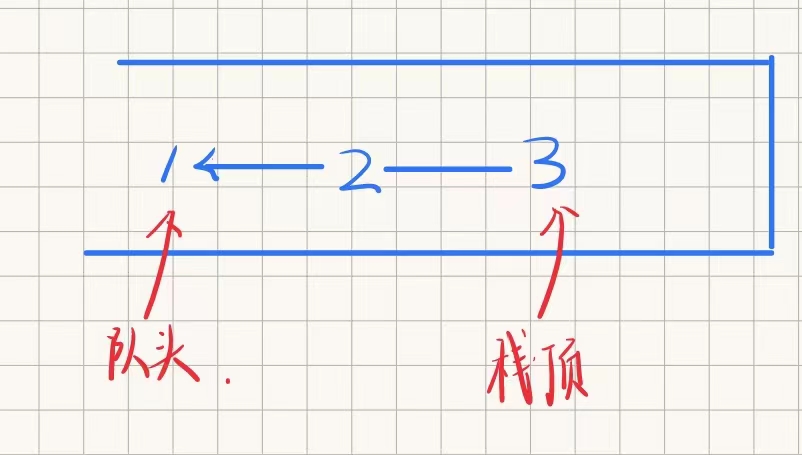 1 2 3
队头. 栈顶